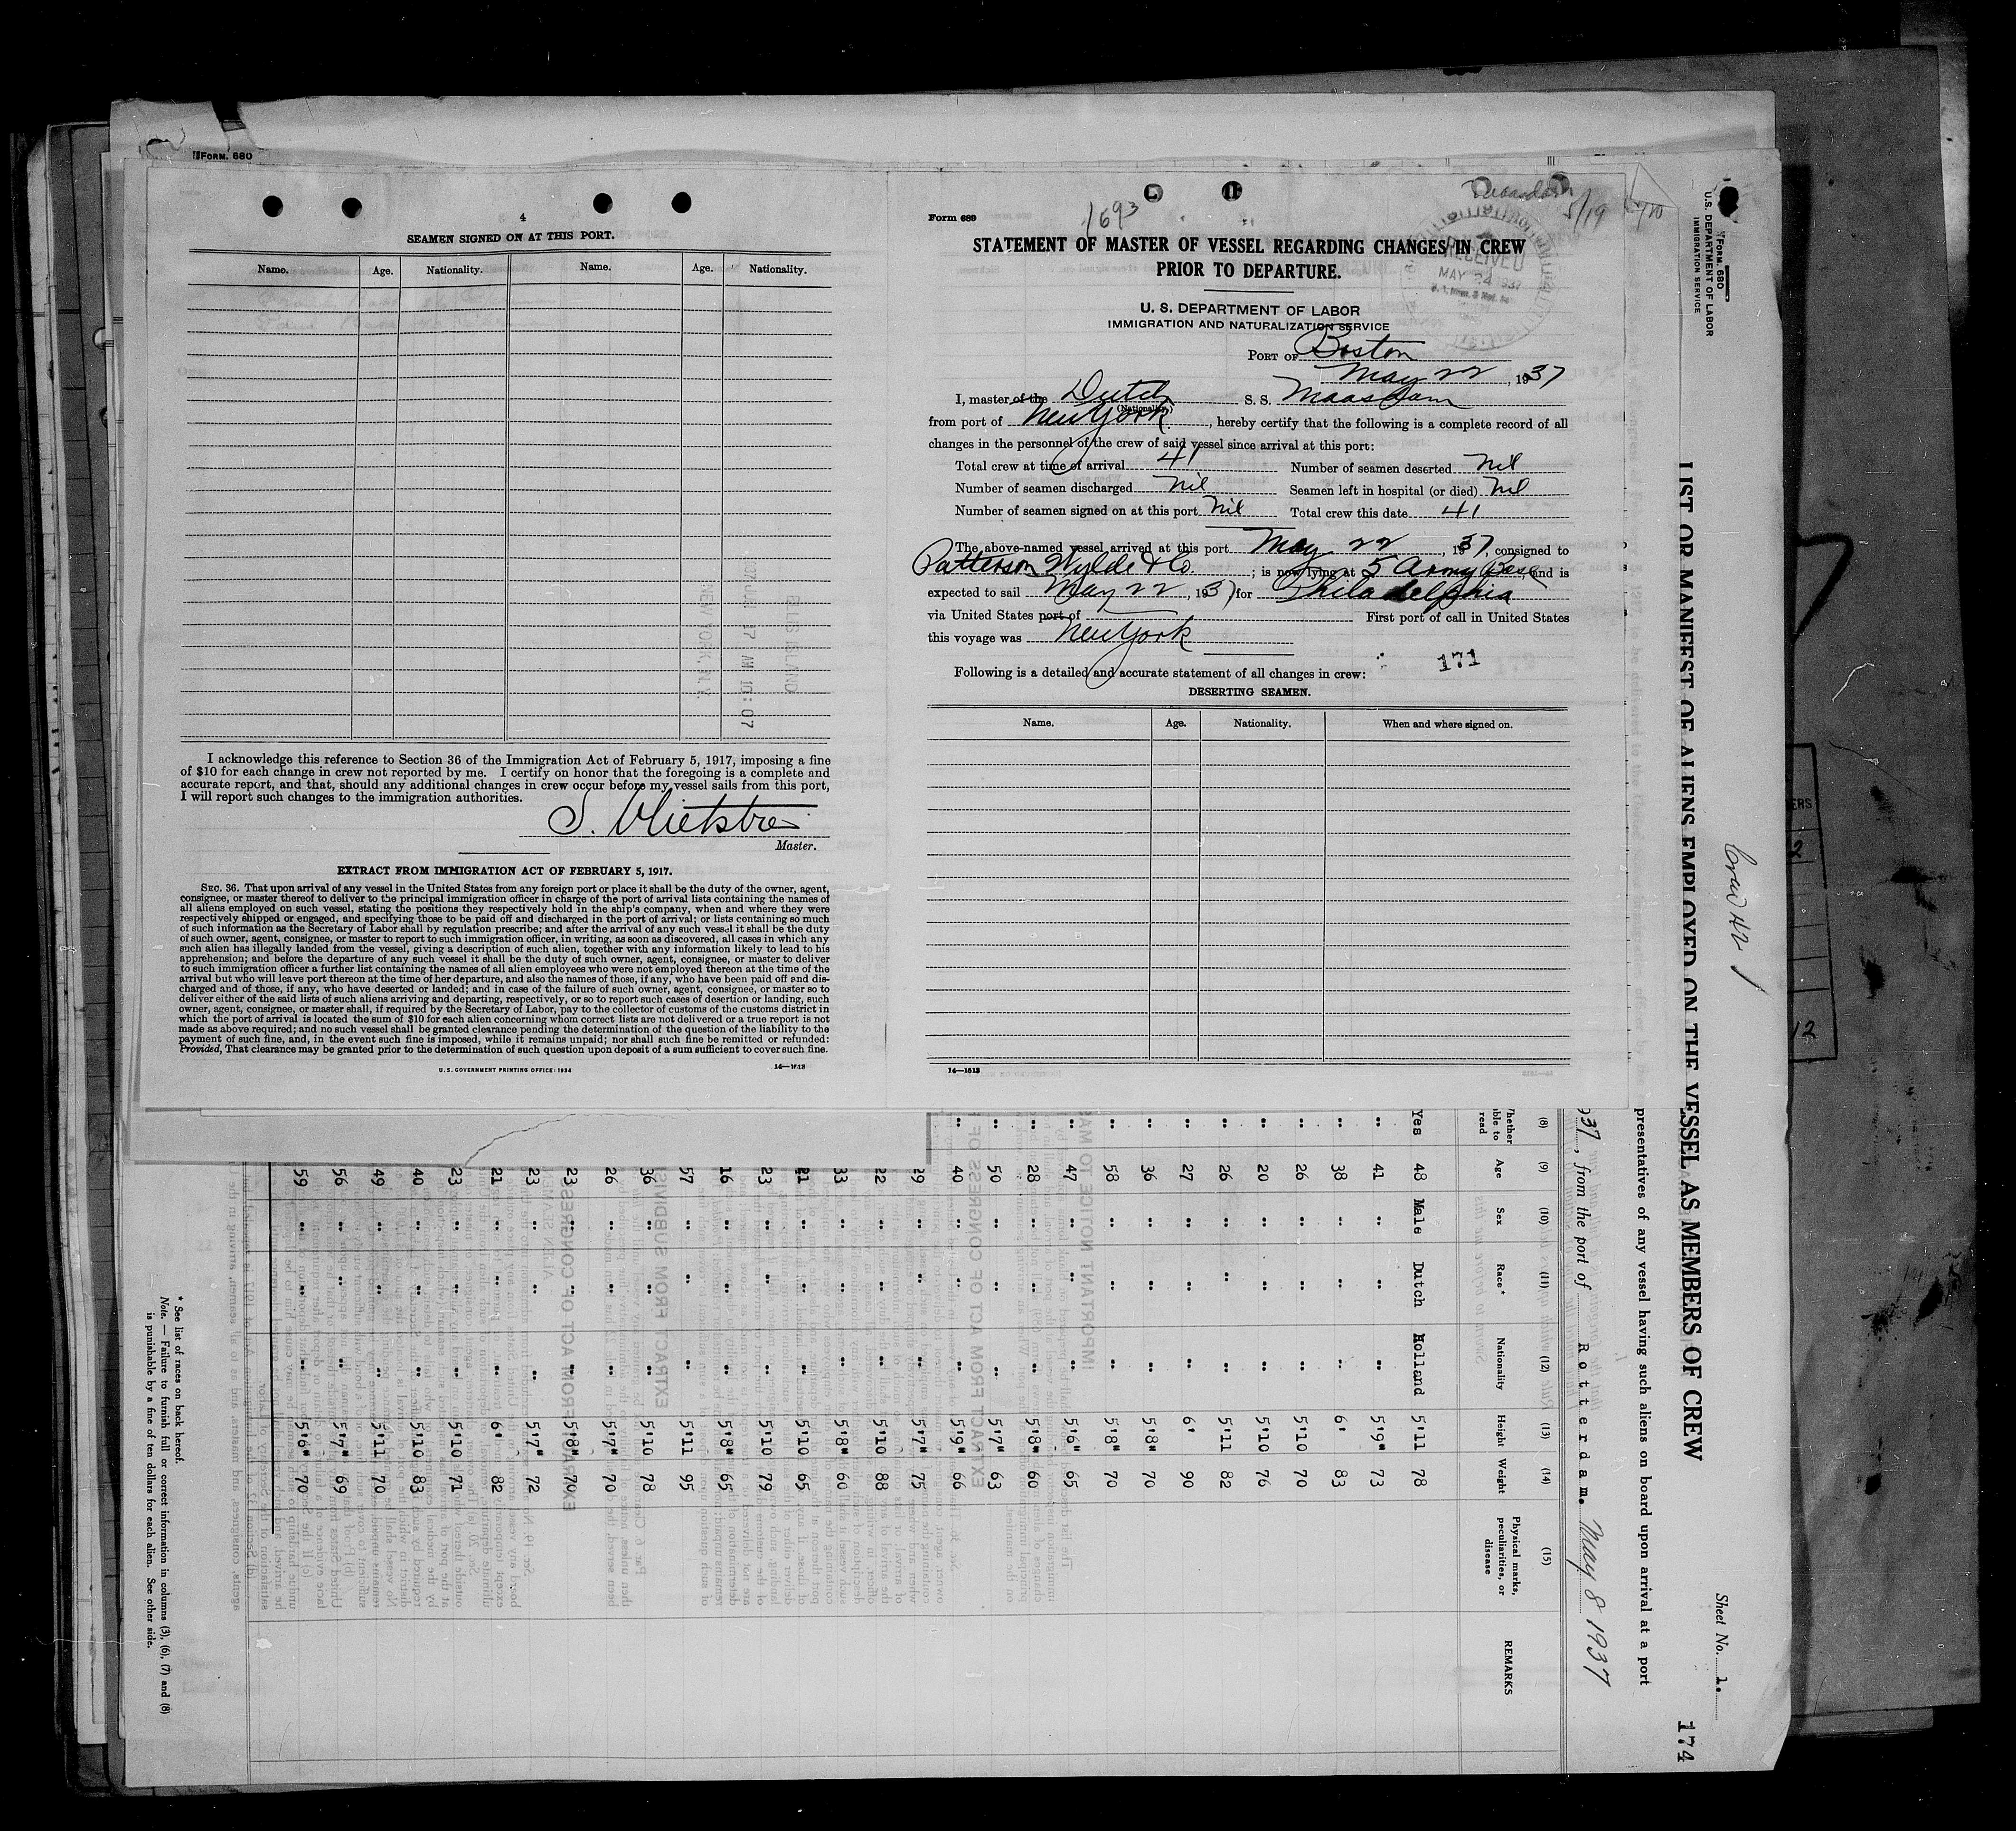 FORM. 680
4
SEAMEN SIGNED ON AT THIS PORT.
Name. Age. Nationality. Name. Age. Nationality.
ELLIS ISLAND
AM 10:07
NEW YORK, N.Y.
I acknowledge this reference to Section 36 of the Immigration Act of February 5, 1917, imposing a fine
of $10 for each change in crew not reported by me. I certify on honor that the foregoing is a complete and
accurate report, and that, should any additional changes in crew occur before my vessel sails from this port,
I will report such changes to the immigration authorities.
S. Vlietstra
Master.
EXTRACT FROM IMMIGRATION ACT OF FEBRUARY 5, 1917.
SEC. 36. That upon arrival of any vessel in the United States from any foreign port or place it shall be the duty of the owner, agent,
consignee, or master thereof to deliver to the principal immigration officer in charge of the port of arrival lists containing the names of
all aliens employed on such vessel, stating the positions they respectively hold in the ship's company, when and where they were
respectively shipped or engaged, and specifying those to be paid off and discharged in the port of arrival; or lists containing so much
of such information as the Secretary of Labor shall by regulation prescribe; and after the arrival of any such vessel it shall be the duty
of such owner, agent, consignee, or master to report to such immigration officer, in writing, as soon as discovered, all cases in which any
such alien has illegally landed from the vessel, giving a description of such alien, together with any information likely to lead to his
apprehension; and before the departure of any such vessel it shall be the duty of such owner, agent, consignee, or master to deliver
to such immigration officer a further list containing the names of all alien employees who were not employed thereon at the time of the
arrival but who will leave port thereon at the time of her departure, and also the names of those, if any, who have been paid off and dis-
charged and of those, if any, who have deserted or landed; and in case of the failure of such owner, agent, consignee, or master so to
deliver either of the said lists of such aliens arriving and departing, respectively, or so to report such cases of desertion or landing, such
owner, agent, consignee, or master shall, if required by the Secretary of Labor, pay to the collector of customs of the customs district in
which the port of arrival is located the sum of $10 for each alien concerning whom correct lists are not delivered or a true report is not
made as above required; and no such vessel shall be granted clearance pending the determination of the question of the liability to the
payment of such fine, and, in the event such fine is imposed, while it remains unpaid; nor shall such fine be remitted or refunded:
Provided, That clearance may be granted prior to the determination of such question upon deposit of a sum sufficient to cover such fine.
U. S. GOVERNMENT PRINTING OFFICE: 1934 14—1613
Form 689
1693
5/19
STATEMENT OF MASTER OF VESSEL REGARDING CHANGES IN CREW
PRIOR TO DEPARTURE.
RECEIVED
MAY 24 1937
U. S. DEPARTMENT OF LABOR
IMMIGRATION AND NATURALIZATION SERVICE
PORT OF Boston
May 22, 1937
I, master of the Dutch S. S. Maasdam
(Nationality)
from port of New York, hereby certify that the following is a complete record of all
changes in the personnel of the crew of said vessel since arrival at this port:
Total crew at time of arrival 41 Number of seamen deserted Nil
Number of seamen discharged Nil Seamen left in hospital (or died) Nil
Number of seamen signed on at this port Nil Total crew this date 41
The above-named vessel arrived at this port May 22, 1937, consigned to
Patterson Wylde & Co. ; is now lying at 5 Army Base, and is
expected to sail May 22, 1937 for Philadelphia
via United States port of First port of call in United States
this voyage was New York
Following is a detailed and accurate statement of all changes in crew:
171
DESERTING SEAMEN.
Name. Age. Nationality. When and where signed on.
14—1613
FORM. 680
U.S. DEPARTMENT OF LABOR
IMMIGRATION SERVICE
LIST OR MANIFEST OF ALIENS EMPLOYED ON THE VESSEL AS MEMBERS OF CREW
Crew 42
Sheet No. 1.
174
presentatives of any vessel having such aliens on board upon arrival at a port
937, from the port of Rotterdam. May 8 1937
(8) (9) (10) (11) (12) (13) (14) (15)
Whether able to read Age Sex Race* Nationality Height Weight Physical marks, peculiarities, or disease REMARKS
Yes 48 Male Dutch Holland 5'11 78
" 41 " " " 5'9" 73
" 38 " " " 6' 83
" 26 " " " 5'10 70
" 20 " " " 5'10 76
" 26 " " " 5'11 82
" 27 " " " 6' 90
" 36 " " " 5'8" 70
" 58 " " " 5'8" 70
" 47 " " " 5'6" 65
" 28 " " " 5'8" 60
" 50 " " " 5'7" 63
" 40 " " " 5'9" 66
29 " " " 5'7" 75
22 " " " 5'10 88
33 " " " 5'8" 60
21 " " " 5'10 65
23 " " " 5'10 79
16 " " " 5'8" 65
57 " " " 5'11 95
36 " " " 5'10 78
26 " " " 5'7" 70
23 " " " 5'8" 70
23 " " " 5'7" 72
21 " " " 6' 82
23 " " " 5'10 71
40 " " " 5'10 83
49 " " " 5'11 70
56 " " " 5'7" 69
59 " " " 5'6" 70
* See list of races on back hereof.
Note. — Failure to furnish full or correct information in columns (3), (6), (7) and (8)
is punishable by a fine of ten dollars for each alien. See other side.